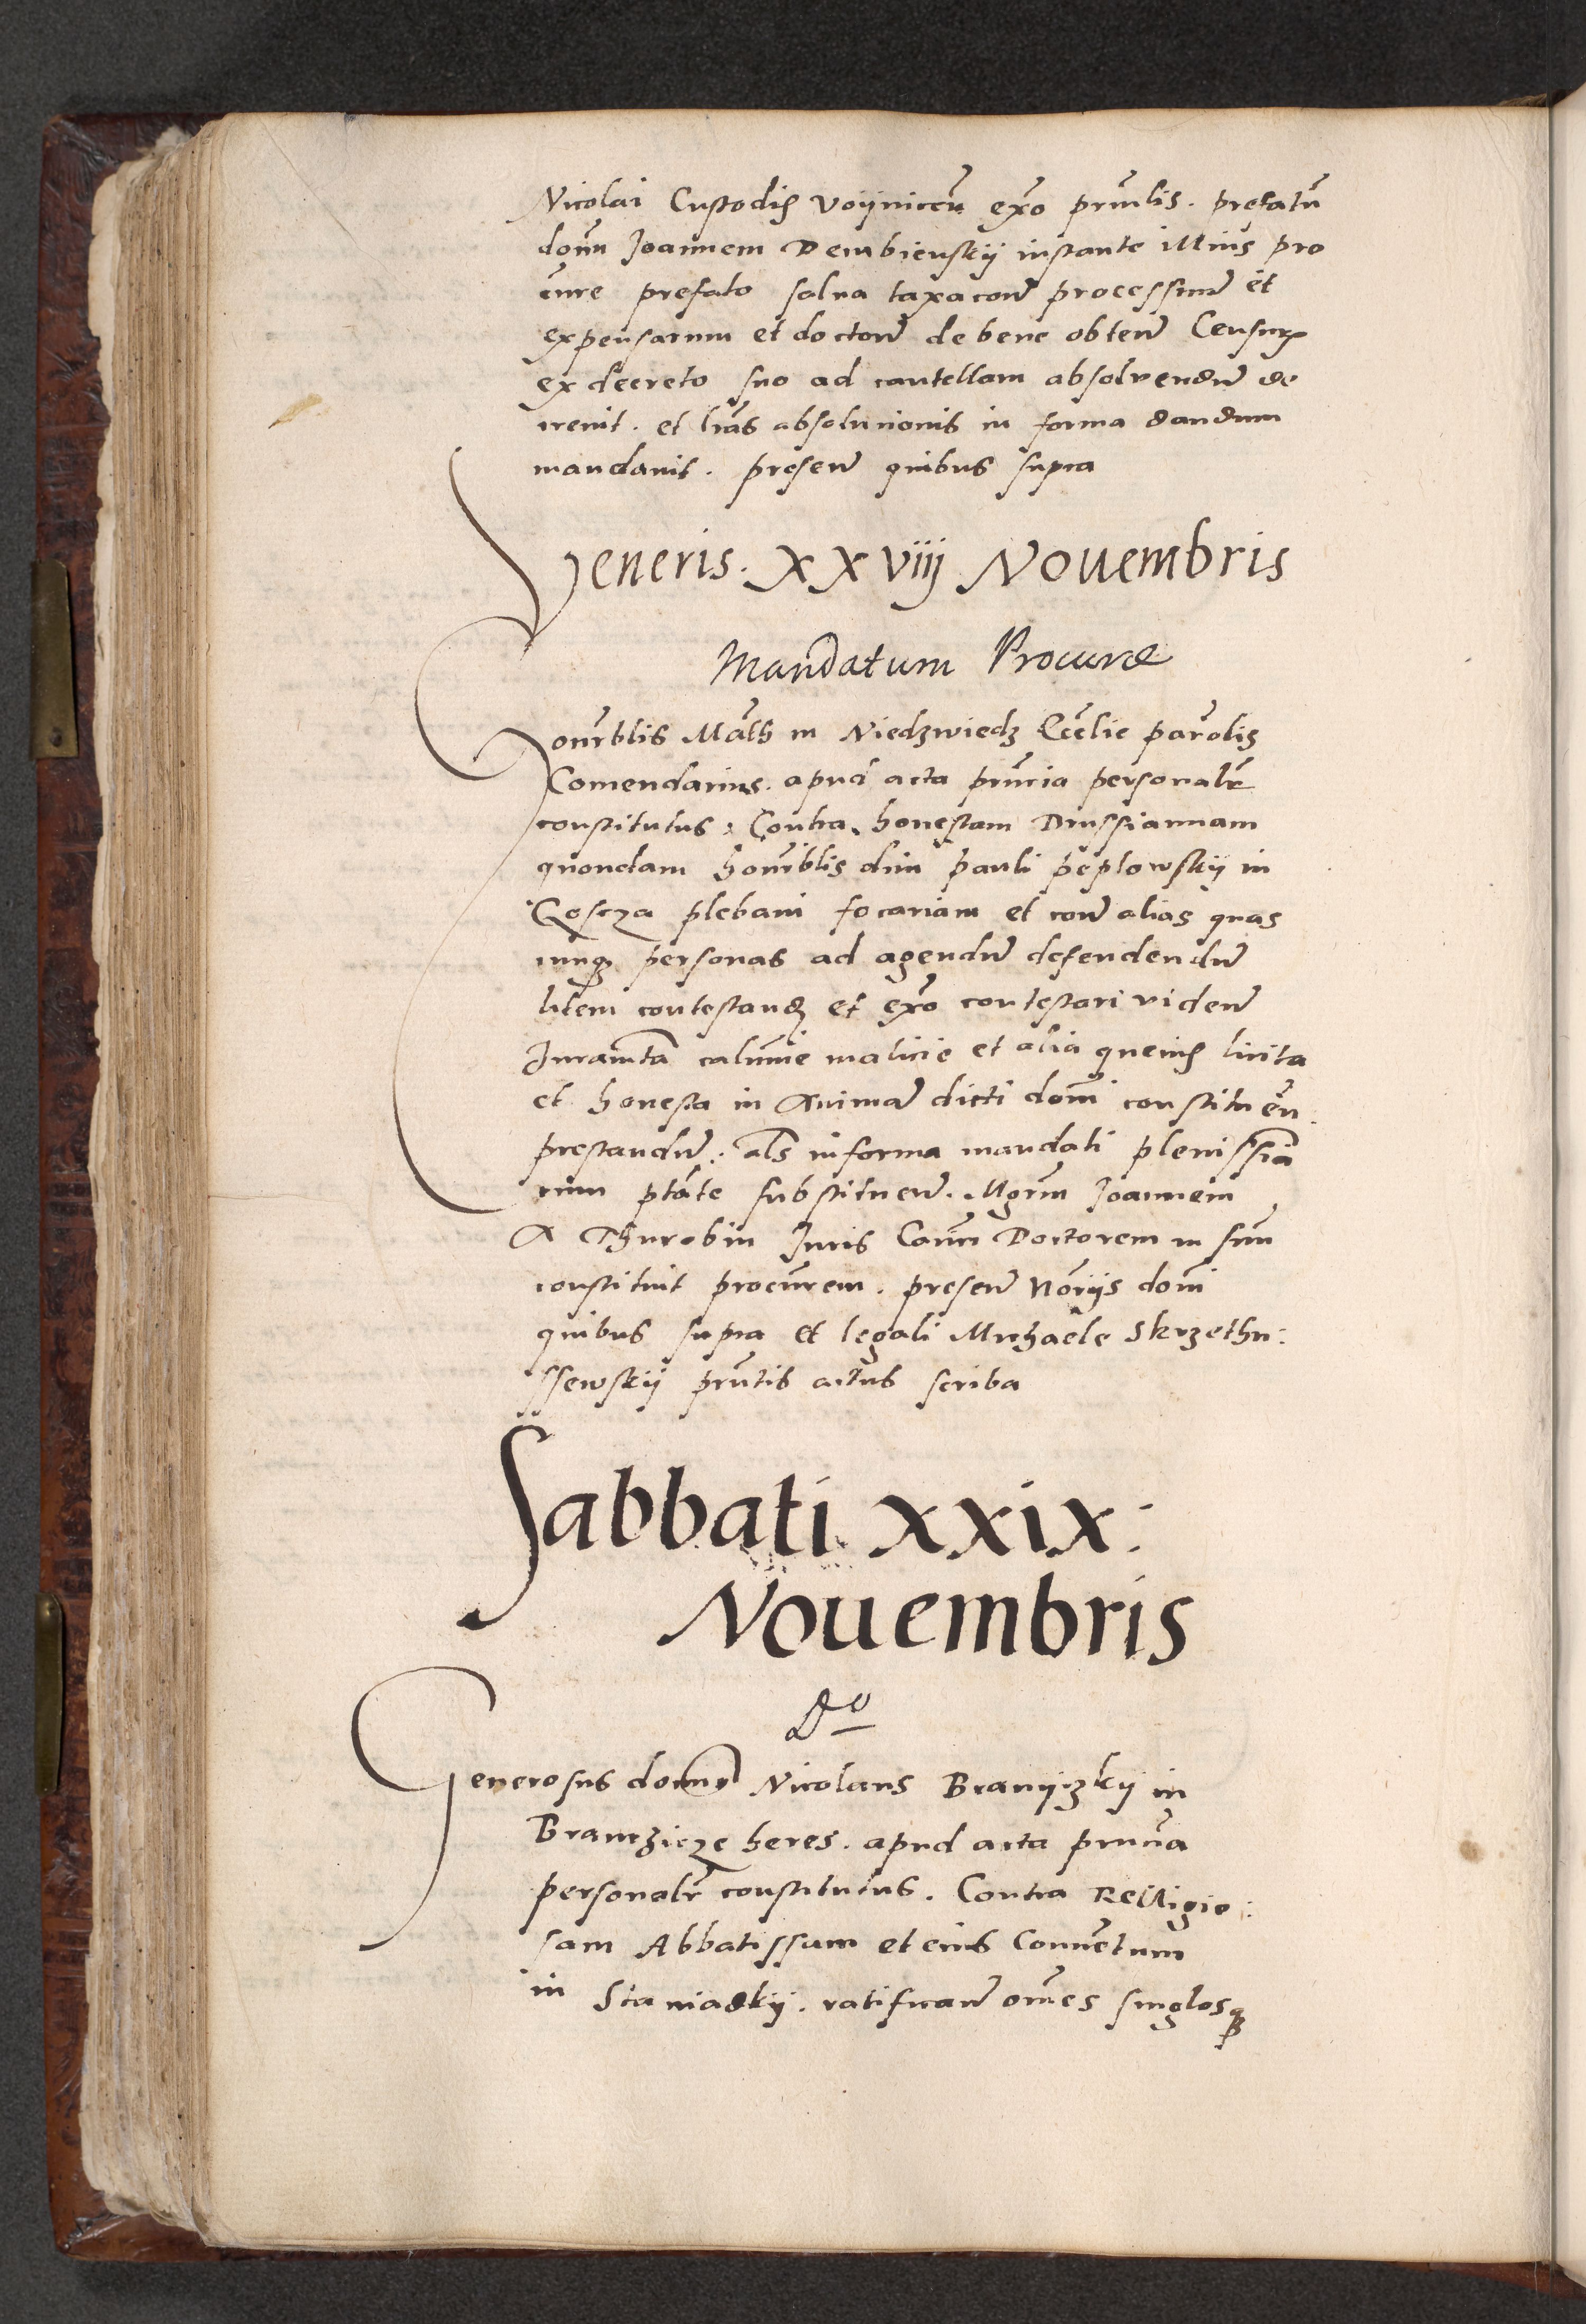 Nicolai Custodis Voijniceñ exõ prñlis. prefatũ
domũ Joannem Dembienskij instante illius pro
cũre prefato salva taxacoñe processuũ et
expensarum et doctoñ de bene obteñ Censurꝝ
ex decreto suo ad cautellam absolvendũ de
crevit. et lrãs absolucionis in forma dandum
mandavit. preseñ quibus supra
Veneris. XXviij Nouembris
Mandatum Procure
Honorãblis Mãths in Niedzwiedz Eccl̃ie parõlis
Comendarius. apud acta prñcia personalr̃
constitutus. Contra. honestam Drussiannam
quondam honorãblis dñi Pauli Peplowskij in
Goscza plebani focariam et coñ alias quas
cunqꝫ personas ad agendũ defendendũ
litem contestandꝫ et exõ contestari videñ
Juramẽta calũnie malicie et alia queuis licita
et honesta in Animã dicti domĩ constituẽn
prestandũ. als̃ in forma mandati plenissiã
cum ptãte substitueñ. Mgrm̃ Joannem
A Thurobin Juris Canõ Doctorem in suũ
constituit procũrem. preseñ Nõrijs domĩ
quibus supra et legali Michaele Skrzethu:
ssewskij prñtis actus scriba
Sabbati. xxix:
Nouembris
Do
Generosus domin9 Nicolaus Branijczkij in
Branczicze heres. apud acta prñcia
personalr̃ constitutus. Contra Relligio:
sam Abbatissam et eius Conuẽtum
in Staniadkij. ratificañ om̃es singlosqꝫ